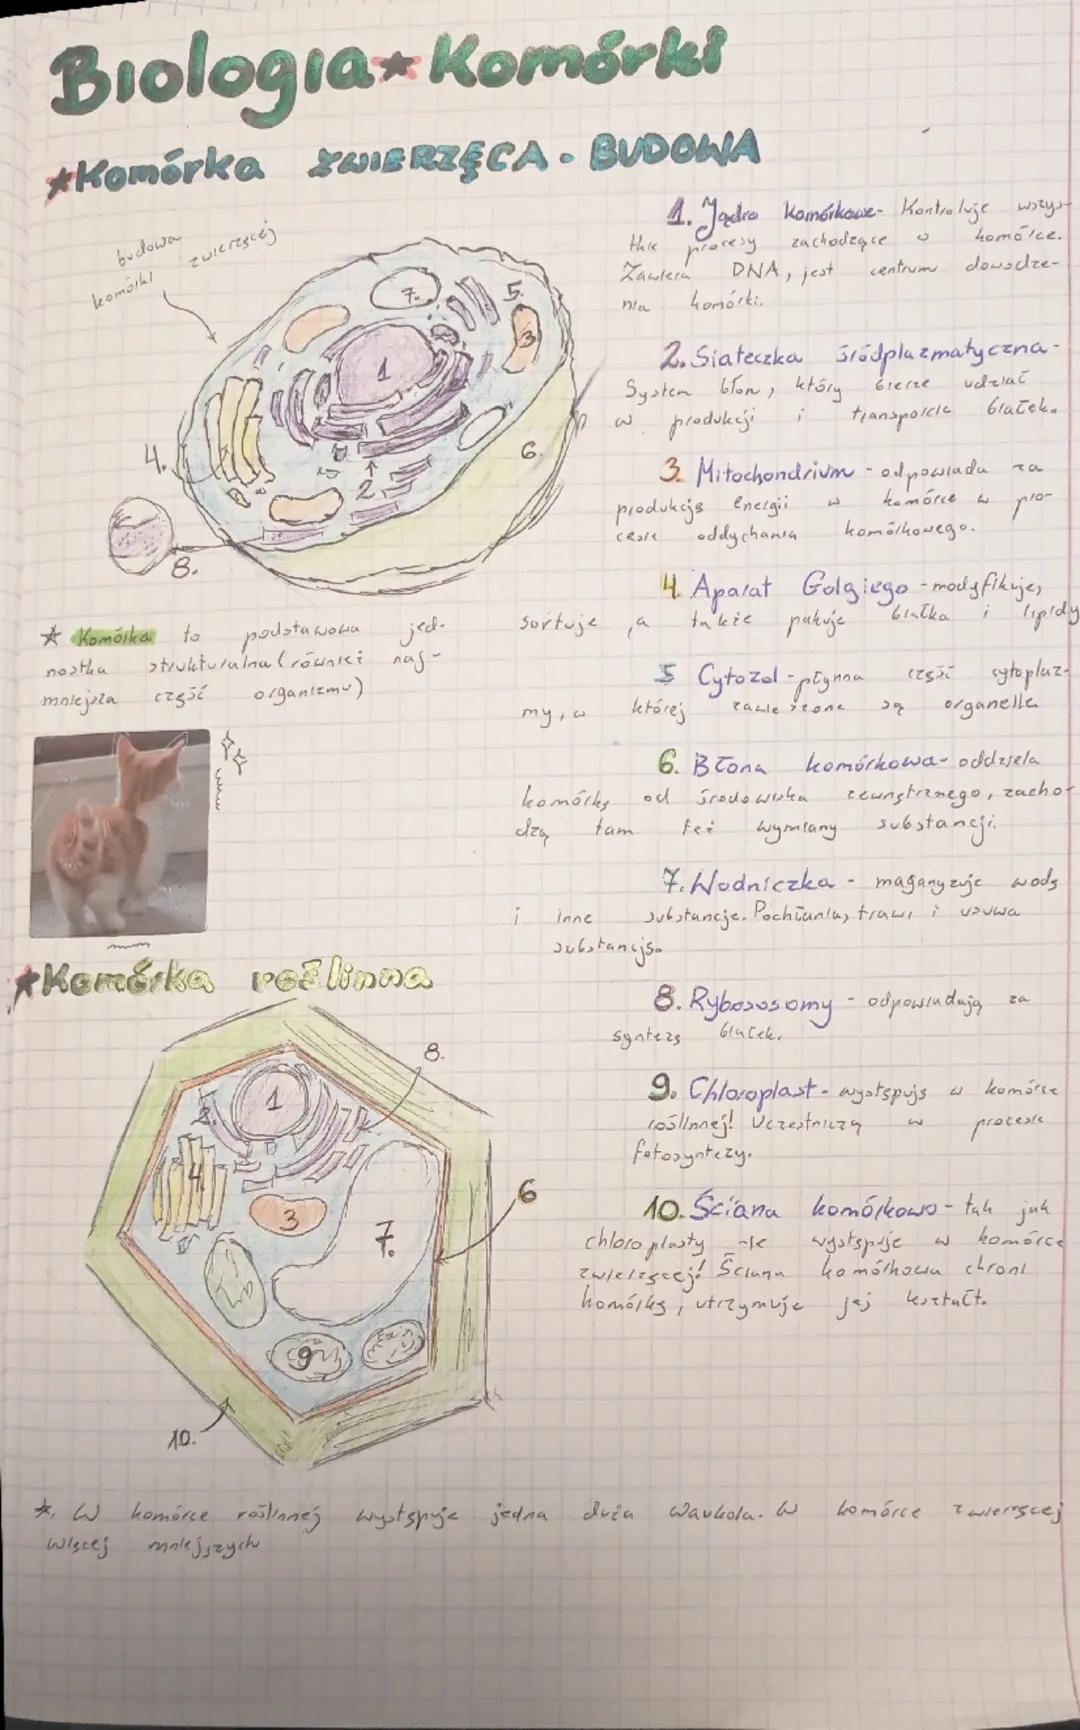 Biologia ★ Komórki
★ Komórka ZWIERZĘCA - BUDOWA
budowa
komórki zwierzęcej
1. Jądro komórkowe - Kontroluje wszys-
tkie procesy zachodzące w komórce.
Zawiera DNA, jest centrum dowodze-
nia komórki.
2. Siateczka śródplazmatyczna -
System błon, który bierze udział
w produkcji i transporcie białek.
3. Mitochondrium - odpowiada za
produkcję energii w komórce w pro-
cesie oddychania komórkowego.
4. Aparat Golgiego - modyfikuje,
sortuje, a także pakuje białka i lipidy
5 Cytozol - płynna część cytoplaz-
my, w której zawieszone są organella
6. Błona komórkowa - oddziela
komórkę od środowiska zewnętrznego, zacho-
dzą tam też wymiany substancji.
7. Wodniczka - magazynuje wodę
i inne substancje. Pochłania, trawi i usuwa
substancję.
8. Rybososomy - odpowiadają za
syntezę białek.
9. Chloroplast - występuję w komórce
roślinnej! Uczestniczą w procesie
fotosyntezy.
10. Ściana komórkowo - tak jak
chloroplasty nie występuje w komórce
zwierzęcej! Ściana komórkowa chroni
komórkę, utrzymuje jej kształt.
7.
5.
3
1
4.
2
6.
8.
★ Komórka to podstawowa jed-
nostka strukturalna (również naj-
mniejsza część organizmu)
★ Komórka roślinna
8.
1
2.
4
3
7.
6
9
10.
★. W komórce roślinnej występuje jedna duża wakuola. W komórce zwierzęcej
więcej mniejszych